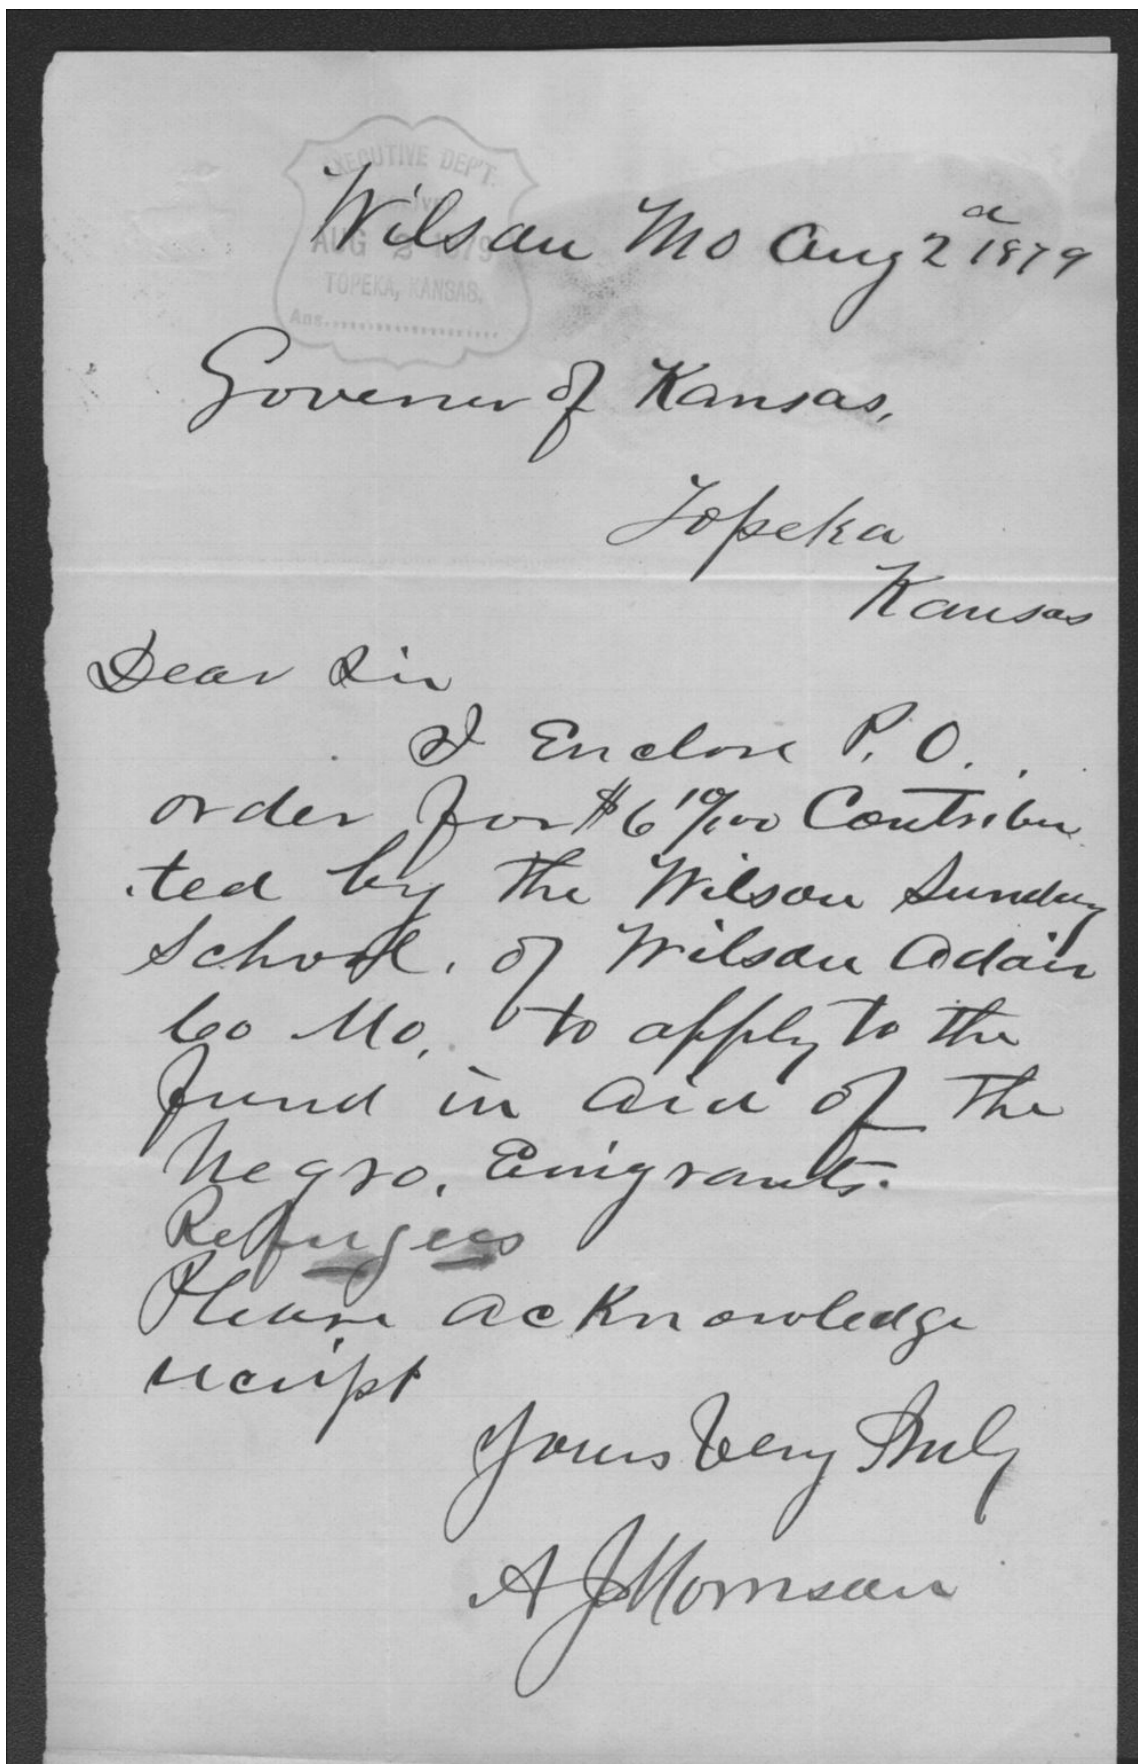 EXECUTIVE DEP'T.
Wilson Mo Aug 2d 1879
AUG 1879
TOPEKA, KANSAS.
Ans.....................
Governer of Kansas,
Topeka
Kansas
Dear Sir
I Enclose P. O.
order for $6 10/100 Contribu
ted by the Wilson Sunday
School, of Wilson Adair
Co Mo, to apply to the
fund in aid of the
Negro, Emigrants.
Refugees
Please acknowledge
receipt
Yours Very Truly
A J Morrison